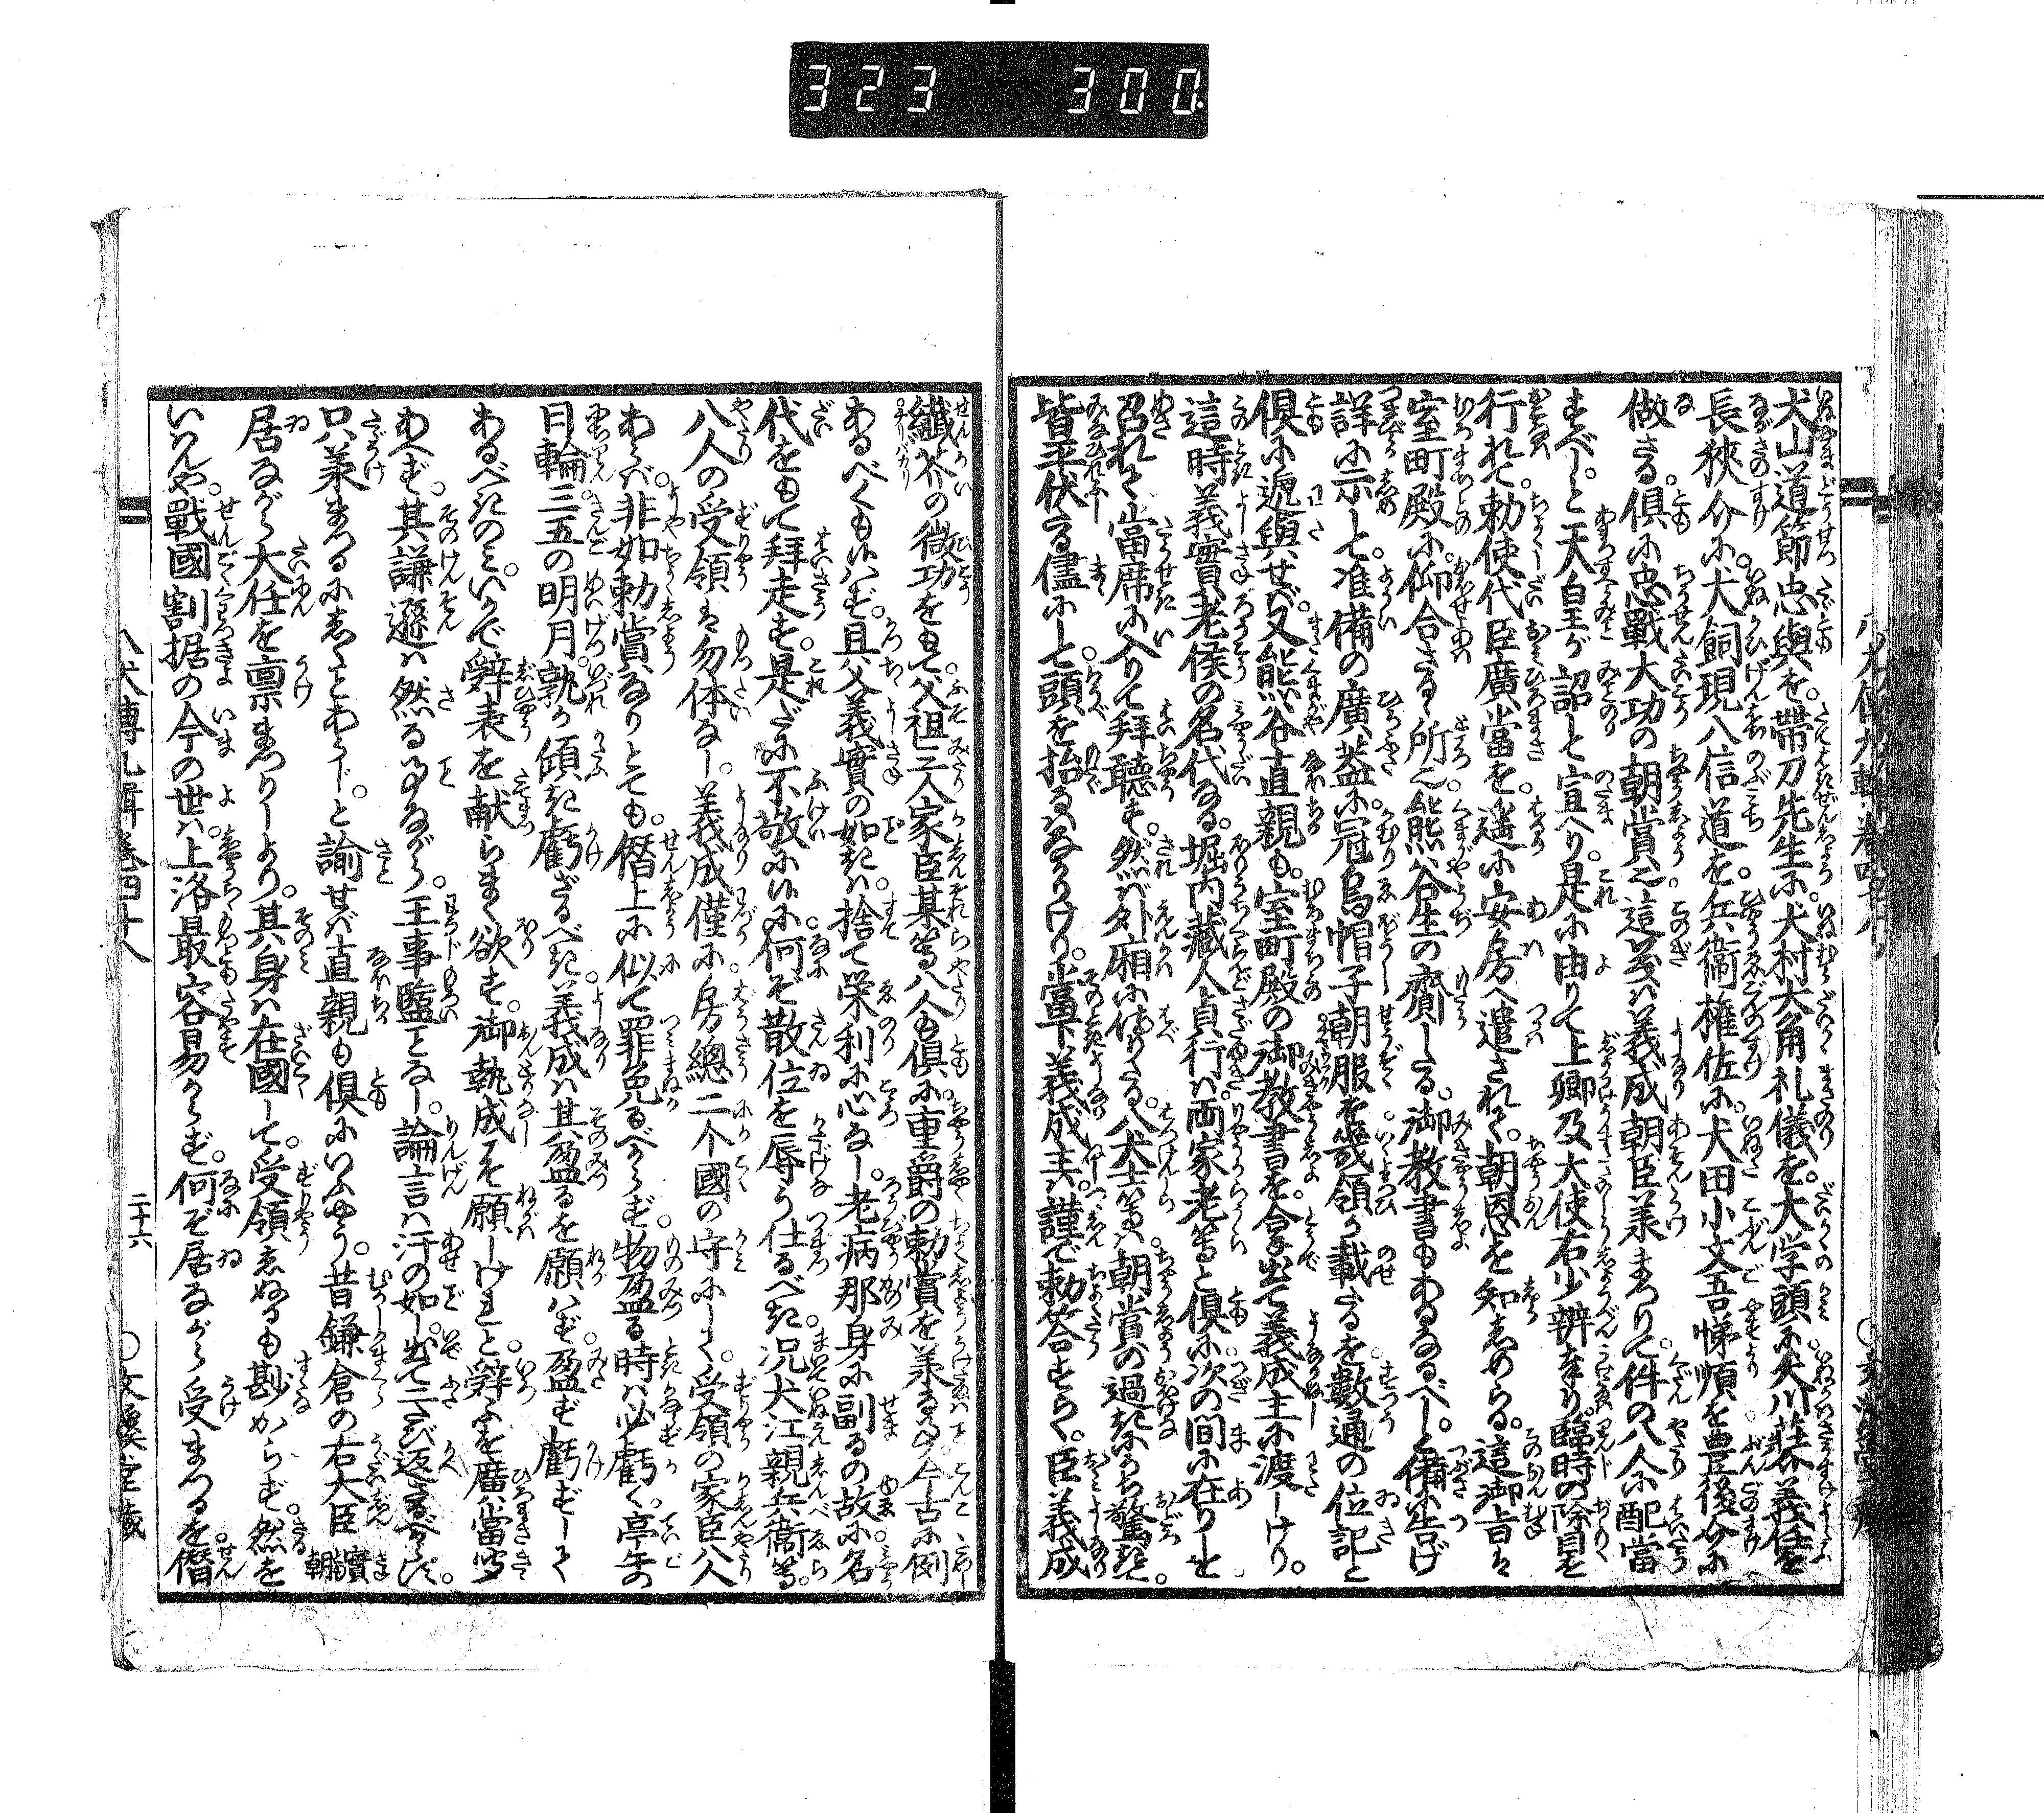 323 300
犬山道節忠與を。帶刀先生に。犬村大角礼儀を。大学頭に。犬川荘介義任を
長狹介に。犬飼現八信道を。兵衞権佐に。犬田小文吾悌順を豊後介に
做さる。倶に忠戰大功の朝賞也。這義は義成朝臣兼まつりて。件の八人に配當
すべし。と天皇が詔して宣へり。是に由りて上卿及大使右少辨奉り。臨時の除目を
行れて。勅使代臣廣當を。遥に安房へ遣されて。朝恩を知しめらる。這御旨は
室町殿に。仰合さるゝ所也。熊谷生の齎したる。御教書もあるなるべし。と備に告げ
詳に示して。准備の廣蓋に。冠烏帽子朝服を幾領か載たるを。數通の位記と
倶に逓與せば。又熊谷直親も。室町殿の御教書を。拿出て義成主に渡しけり。
這時義實老侯の名代なる。堀内藏人貞行は。両家老等と倶に。次の間に在りしを
召れて當席に入りて拜聽す。然ば外廂に侍りたる。八犬士等は。朝賞の過たるに驚きて。
皆平伏たる儘にして。頭を抬るはなかりけり。當下義成主。謹で勅答すらく。臣義成
纎芥の微功をもて。父祖三人家臣某等八人も倶に。重爵の勅賞を兼る事。今古に例
あるべくも候はず。且父義實の如きは。捨て栄利に心なし。老病那身に副るの故に。名
代をもて拜走す。是だに不敬に候に。何ぞ散位を辱う仕るべき。况犬江親兵衞等。
八人の受領は勿体なし。義成僅に。房總二个國の守にして。受領の家臣八人
あらば。非如勅賞なりとても。僭上に似て罪免るべからず。物盈る時は必虧く。亭午の
日輪。三五の明月。孰か傾き虧ざるべき。義成は其盈るを願はず。盈ず虧ずして
あるべきのみ。いかで辭表を献らまく欲す。御執成を願しけれと。辭ふを廣當听
あへず。其謙遜は然る事ながら。王事盬となし。綸言は汗の如し。出て二たび返さるべからず。
只兼まつるにしくことあらじ。と諭せば直親も倶にいふやう。昔鎌倉の右大臣實朝
居ながら大任を禀まつりしより。其身は在國して。受領しぬるも尠からず。然を
いはんや戰國割据の今の世は。上洛最容易からず。何ぞ居ながら受まつるを僭
八犬傳九輯卷四十八
二十六
文溪堂藏